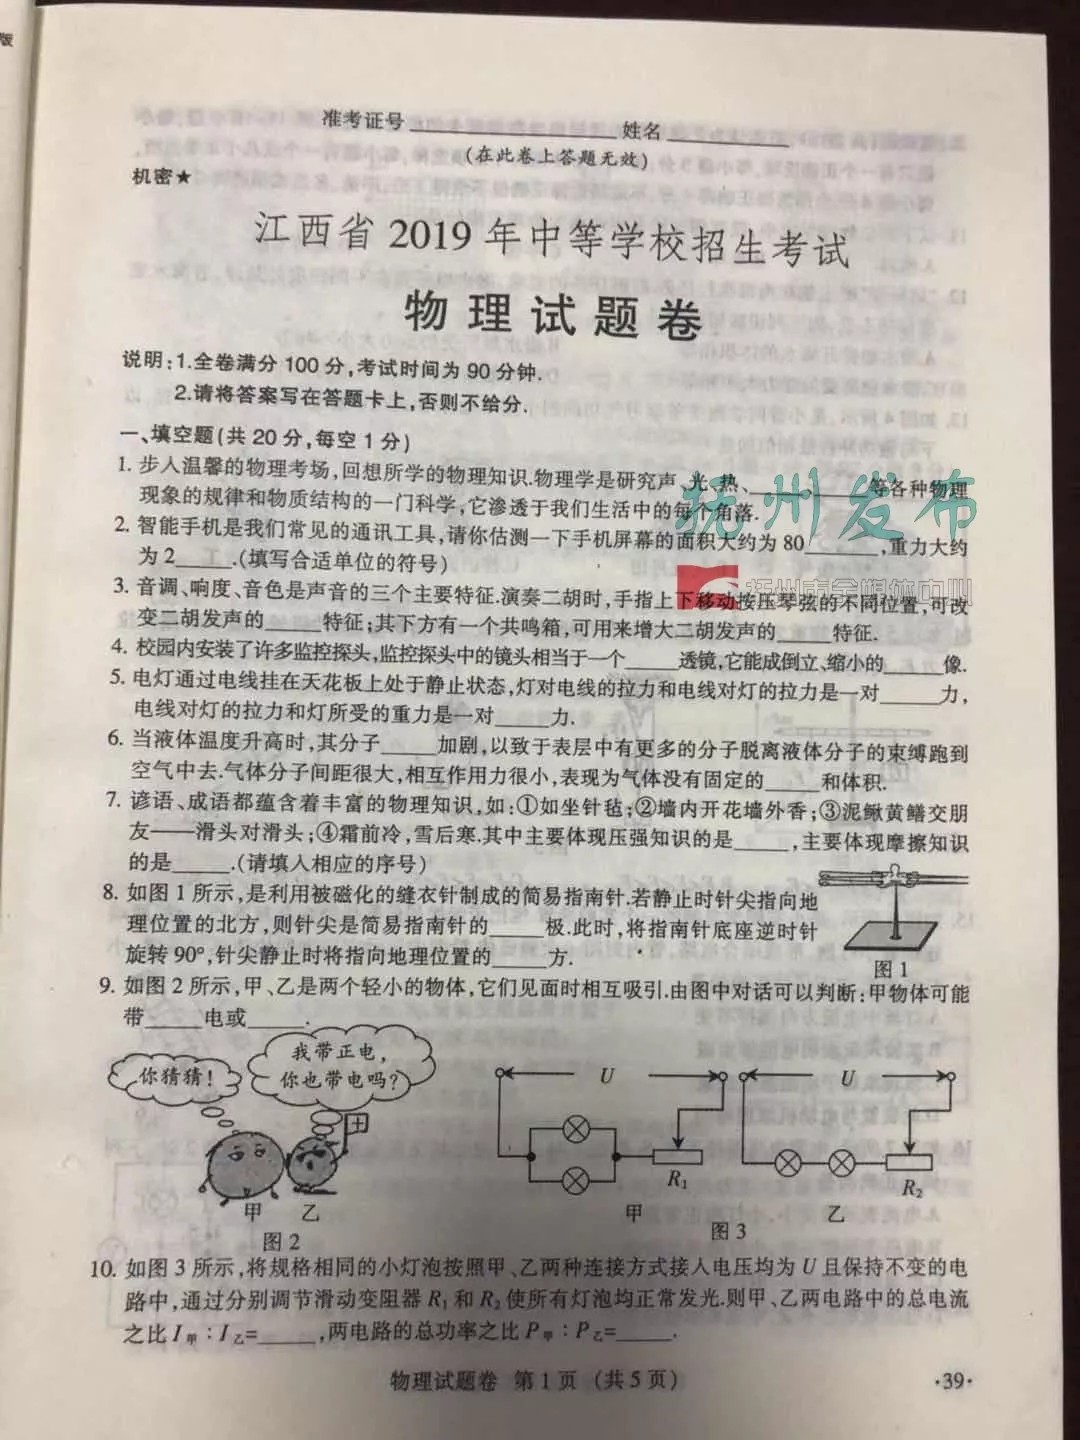 版
准考证号 姓名
(在此卷上答题无效)
机密★
江西省 2019 年中等学校招生考试
物理试题卷
说明:1.全卷满分 100 分,考试时间为 90 分钟.
2.请将答案写在答题卡上,否则不给分.
一、填空题(共 20 分,每空 1 分)
1. 步入温馨的物理考场,回想所学的物理知识.物理学是研究声、光、热、______等各种物理
现象的规律和物质结构的一门科学,它渗透于我们生活中的每个角落.
抚州发布
2. 智能手机是我们常见的通讯工具,请你估测一下手机屏幕的面积大约为 80______,重力大约
为 2_____.(填写合适单位的符号)
抚州市全媒体中心
3. 音调、响度、音色是声音的三个主要特征.演奏二胡时,手指上下移动按压琴弦的不同位置,可改
变二胡发声的_____特征;其下方有一个共鸣箱,可用来增大二胡发声的_____特征.
4. 校园内安装了许多监控探头,监控探头中的镜头相当于一个_____透镜,它能成倒立、缩小的_____像.
5. 电灯通过电线挂在天花板上处于静止状态,灯对电线的拉力和电线对灯的拉力是一对_____力,
电线对灯的拉力和灯所受的重力是一对_____力.
6. 当液体温度升高时,其分子_____加剧,以致于表层中有更多的分子脱离液体分子的束缚跑到
空气中去.气体分子间距很大,相互作用力很小,表现为气体没有固定的_____和体积.
7. 谚语、成语都蕴含着丰富的物理知识,如:①如坐针毡;②墙内开花墙外香;③泥鳅黄鳝交朋
友——滑头对滑头;④霜前冷,雪后寒.其中主要体现压强知识的是_____,主要体现摩擦知识
的是_____.(请填入相应的序号)
8. 如图 1 所示,是利用被磁化的缝衣针制成的简易指南针.若静止时针尖指向地
理位置的北方,则针尖是简易指南针的_____极.此时,将指南针底座逆时针
旋转 90°,针尖静止时将指向地理位置的_____方.
图 1
9. 如图 2 所示,甲、乙是两个轻小的物体,它们见面时相互吸引.由图中对话可以判断:甲物体可能
带_____电或_____.
你猜猜!
我带正电,
你也带电吗?
甲 乙
图 2
U
R₁
甲
U
R₂
乙
图 3
10. 如图 3 所示,将规格相同的小灯泡按照甲、乙两种连接方式接入电压均为 U 且保持不变的电
路中,通过分别调节滑动变阻器 R₁ 和 R₂ 使所有灯泡均正常发光.则甲、乙两电路中的总电流
之比 I甲∶I乙=_____,两电路的总功率之比 P甲∶P乙=_____.
物理试题卷 第 1 页 (共 5 页)
·39·